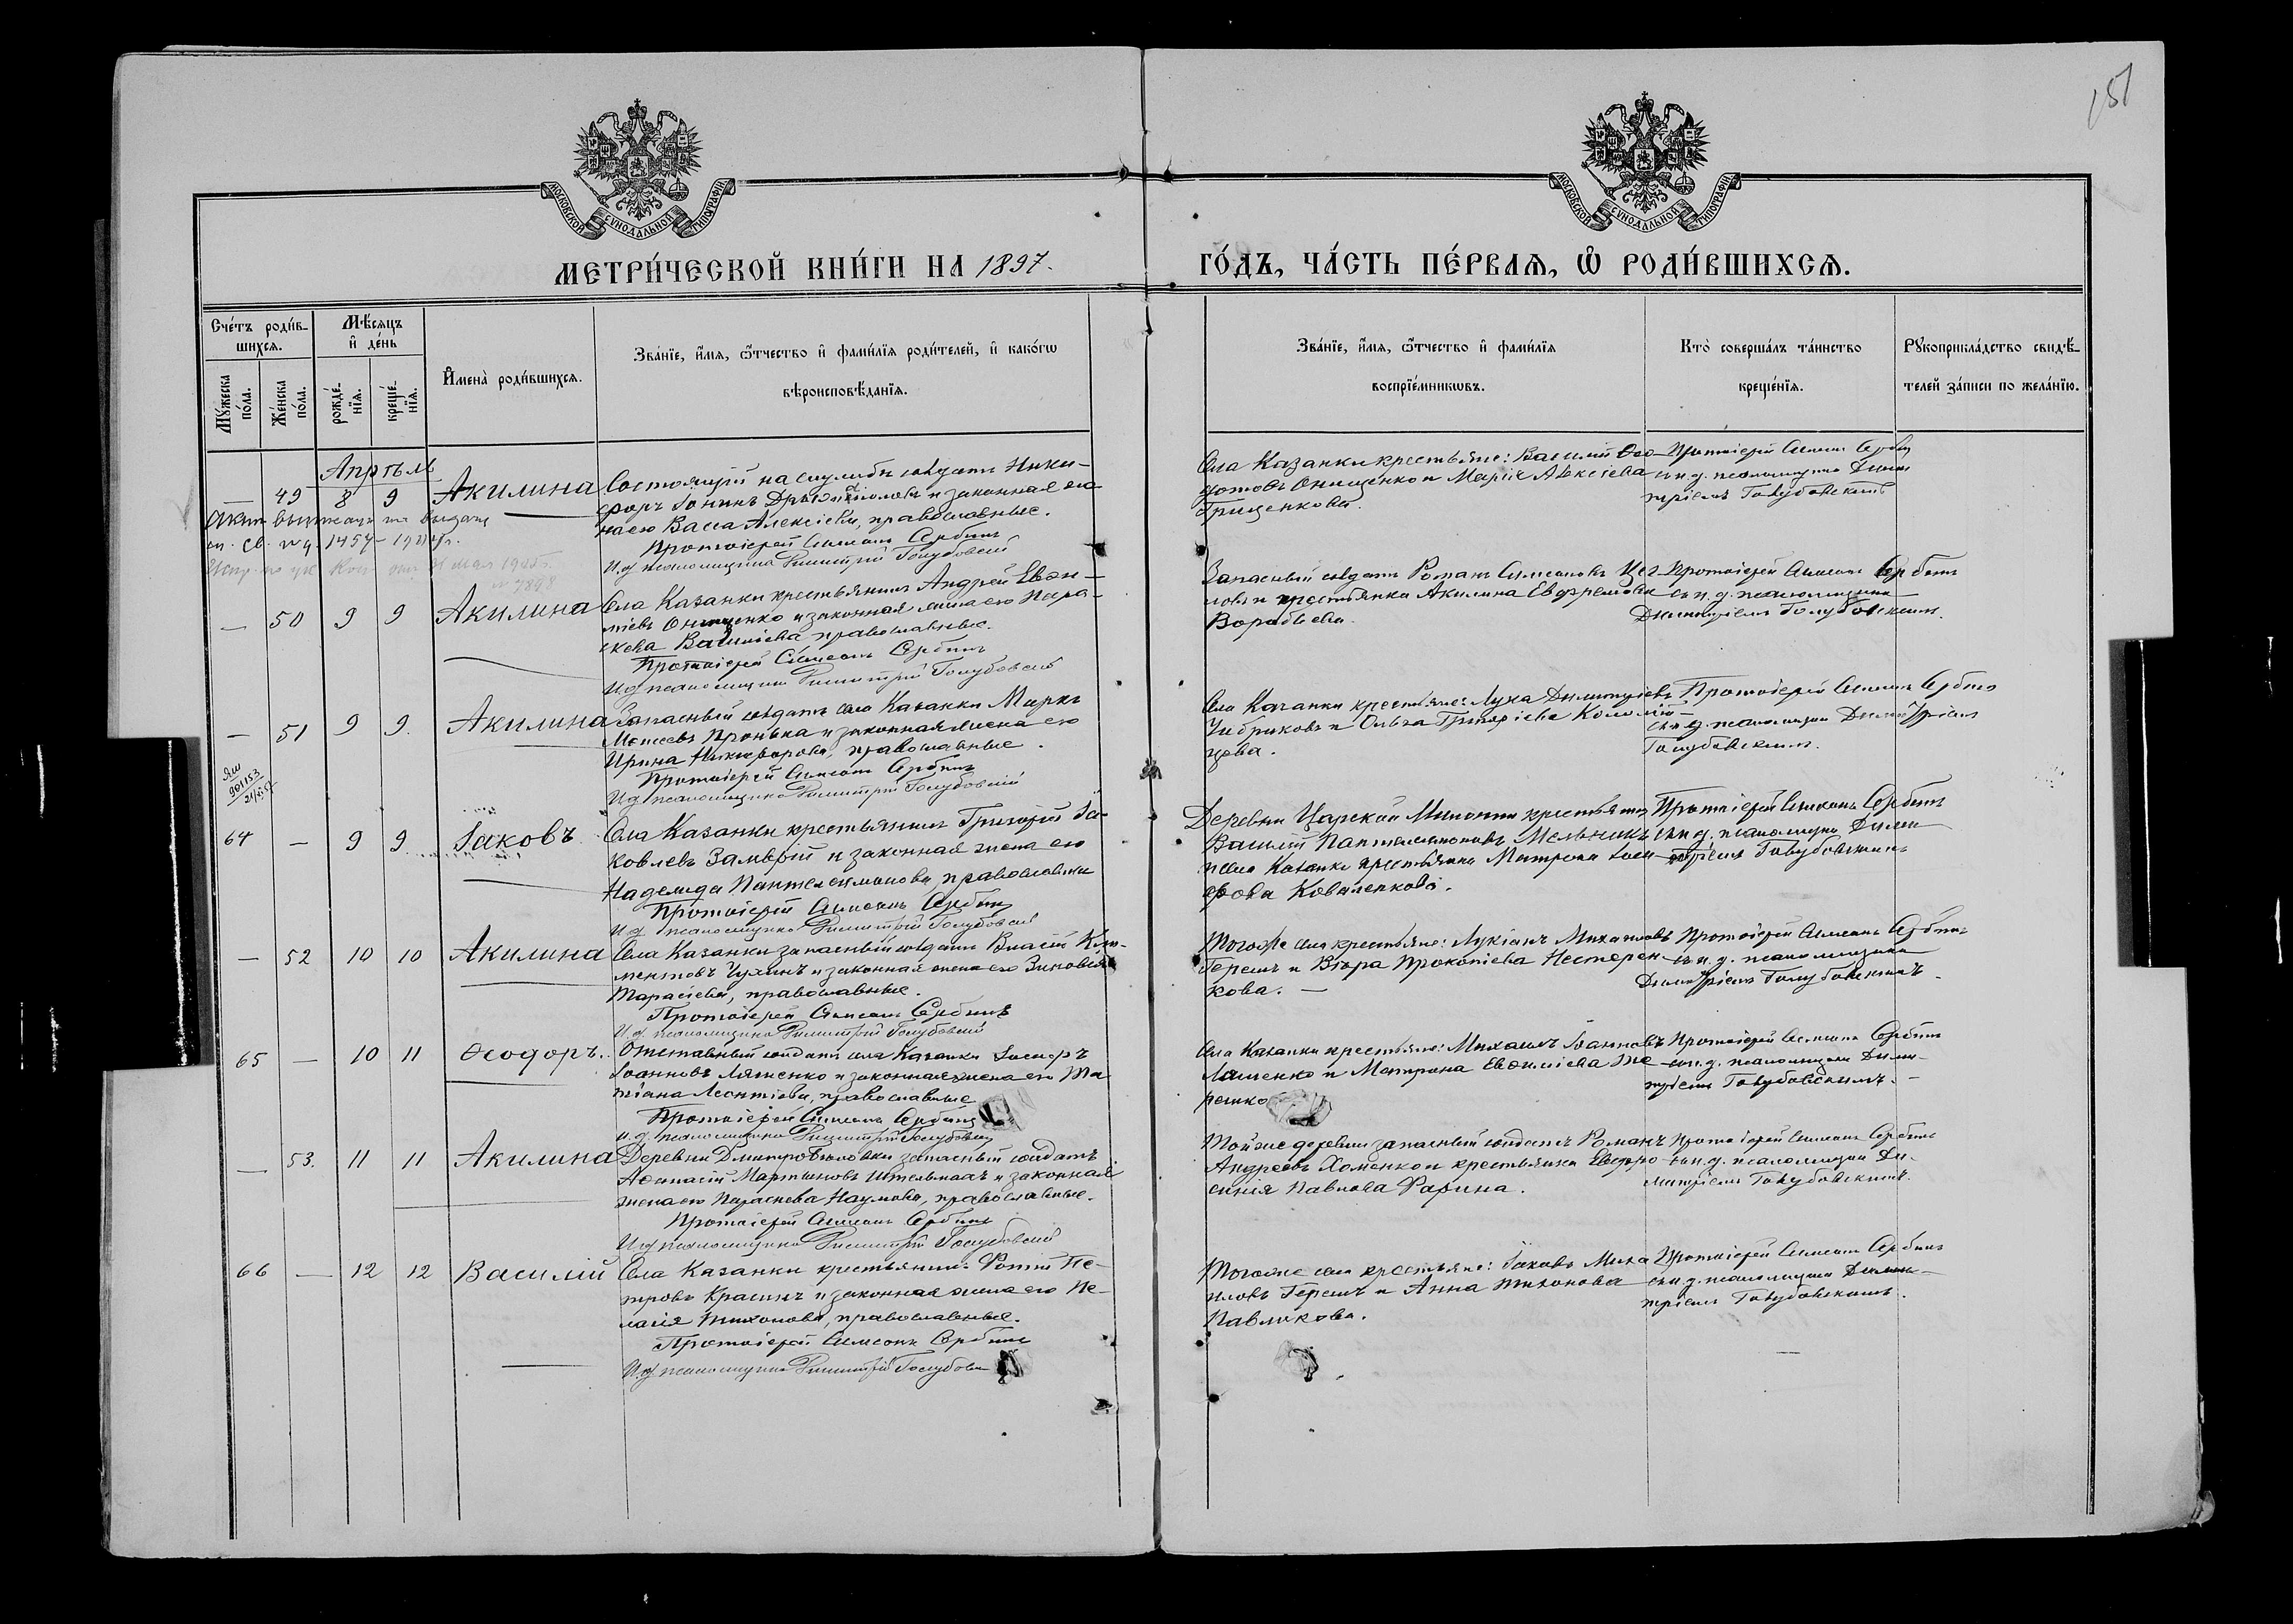 151
МОСКОВСКОЙ СѴНОДАЛЬНОЙ ТИПОГРАФІИ
МОСКОВСКОЙ СѴНОДАЛЬНОЙ ТИПОГРАФІИ
МЕТРИ́ЧЕСКОЙ КНИ́ГИ НА 1897.
ГО́ДЪ, ЧА́СТЬ ПЕ́РВАѦ, Ѡ҆ РОДИ́ВШИХСѦ.
Сче́тъ роди́в-
шихсѧ.
Мꙋ́жеска
по́ла.
Же́нска
по́ла.
Мѣ́сѧцъ
и҆ де́нь
рожде́-
нїѧ.
креще́-
нїѧ.
И҆мена̀ роди́вшихсѧ.
Зва́нїе, и҆́мѧ, ѻ҆́тчество и҆ фами́лїѧ роди́телей, и҆ како́гѡ
вѣроисповѣ́данїѧ.
Зва́нїе, и҆́мѧ, ѻ҆́тчество и҆ фами́лїѧ
воспрїе́мникѡвъ.
Кто̀ соверша́лъ та́инство
креще́нїѧ.
Рꙋкоприкла́дство свидѣ́-
телей за́писи по жела́нїю.
Апрѣль
— 49 8 9 Акилина
Состоящій на службѣ солдатъ Ники-
форъ Іонинъ и законная же
на его Васса Алексіева, православные.
Протоіерей Симеонъ Сербинъ
И.д. псаломщика Димитрій Голубовскій
Села Казанки крестьяне: Василій Ѳео-
Онищенко и Марія Алексіева
Грищенкова.
Протоіерей Симеонъ Сербинъ
съ и.д. псаломщика Дими
тріемъ Голубовскимъ
— 50 9 9 Акилина
Села Казанки крестьянинъ Андрей Евѳи-
міевъ Онищенко и законная жена его Пара-
скева Василіева православные.
Протоіерей Симеонъ Сербинъ
И.д. псаломщика Димитрій Голубовскій
Запасный солдатъ Романъ Симеоновъ
и крестьянка Акилина Евфремова
Воробьева.
Протоіерей Симеонъ Сербинъ
съ и.д. псаломщика
Димитріемъ Голубовскимъ.
— 51 9 9. Акилина
Запасный солдатъ села Казанки Маркъ
Моисеевъ Пронька и законная жена его
Ирина Никифорова, православные.
Протоіерей Симеонъ Сербинъ
И.д. псаломщика Димитрій Голубовскій
Села Казанки крестьяне: Лука Димитріевъ
Чибриковъ и Ольга Григоріева Коломій-
цева.
Протоіерей Симеонъ Сербинъ
съ и.д. псаломщика Димитріемъ
Голубовскимъ.
64 — 9 9. Іаковъ
Села Казанки крестьянинъ Григорій Іа-
ковлевъ Замврій и законная жена его
Надежда Пантелеимонова, православные
Протоіерей Симеонъ Сербинъ
И.д. псаломщика Димитрій Голубовскій
Деревни Царской Милости крестьянинъ
Василій Пантелеимоновъ Мельникъ
и села Казанки крестьянка Матрона Іоси-
фова Коваленкова.
Протоіерей Симеонъ Сербинъ
съ и.д. псаломщика Дими
тріемъ Голубовскимъ
— 52 10 10 Акилина
Села Казанки запасный солдатъ Власій Кли-
ментовъ Чухинъ и законная жена его Зиновія
Тарасіева, православные.
Протоіерей Симеонъ Сербинъ
И.д. псаломщика Димитрій Голубовскій
Того же села крестьяне: Лукіанъ Михаиловъ
Герешъ и Вѣра Прокопіева Нестерен-
кова. —
Протоіерей Симеонъ Сербинъ
съ и.д. псаломщика
Димитріемъ Голубовскимъ.
65 — 10 11 Ѳеодоръ.
Отставный солдатъ села Казанки Іосифъ
Іоанновъ Ляшенко и законная жена его Та
тіана Леонтіева, православные
Протоіерей Симеонъ Сербинъ
И.д. псаломщика Димитрій Голубовскій
Села Казанки крестьяне: Михаилъ Іоанновъ
Ляшенко и Матрона Евѳиміева Те
решко
Протоіерей Симеонъ Сербинъ
съ и.д. псаломщика Дими-
тріемъ Голубовскимъ. —
— 53. 11 11 Акилина
Деревни Дмитро-Бѣловки запасный солдатъ
Аѳанасій Мартыновъ Штельмахъ и законная
жена его Параскева Наумова, православные.
Протоіерей Симеонъ Сербинъ
И.д. псаломщика Димитрій Голубовскій
Той же деревни запасный солдатъ Романъ
Андреевъ Хоменко и крестьянка Евфро
синія Павлова Фарина.
Протоіерей Симеонъ Сербинъ
съ и.д. псаломщика Ди-
митріемъ Голубовскимъ.
66 — 12 12 Василій
Села Казанки крестьянинъ Фотій Пе-
тровъ Красинъ и законная жена его Пе-
лагія Тихонова, православные.
Протоіерей Симеонъ Сербинъ
И.д. псаломщика Димитрій Голубовс
Того же села крестьяне: Іаковъ Миха
иловъ Герешъ и Анна Тихонова
Павликова.
Протоіерей Симеонъ Сербинъ
съ и.д. псаломщика Дими-
тріемъ Голубовскимъ.